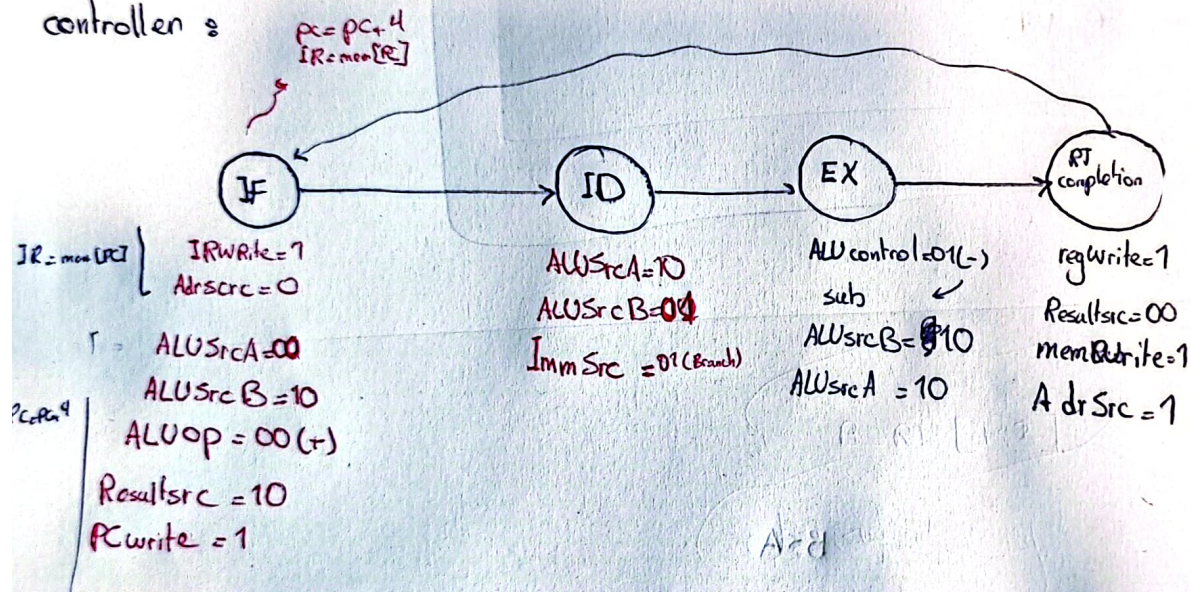 controller :
pc= pc+4
IR=mem[PC]
IF
ID
EX
RT
completion
IR=mem[PC]
IRWRite=1
Adrscrc=0
ALUSrcA=00
ALUSrcB=10
PC=PC+4
ALUOP=00(+)
Resultsrc=10
PCwrite=1
ALUSrcA=10
ALUSrcB=01
ImmSrc=01(Branch)
ALUcontrol=01(-)
sub
ALUsrcB=10
ALUsrcA=10
regwrite=1
Resultsrc=00
memwrite=1
AdrSrc=1